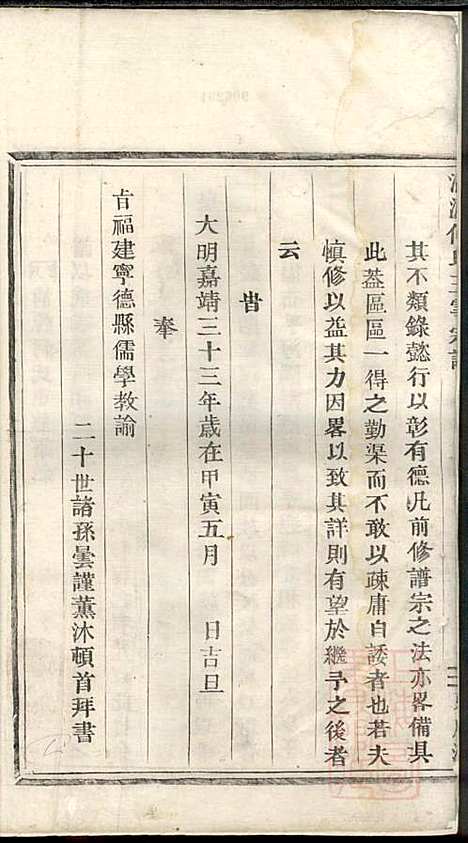 其不類錄懿行以彰有德凡前修譜宗之法亦畧備具
此葢區區一得之勤渠而不敢以疎庸自諉者也若夫
慎修以益其力因畧以致其詳則有望於繼予之後者
云
旹
大明嘉靖三十三年歲在甲寅五月 日吉旦
奉
㫖福建寧德縣儒學教諭
二十世諸孫曇謹薰沐頓首拜書